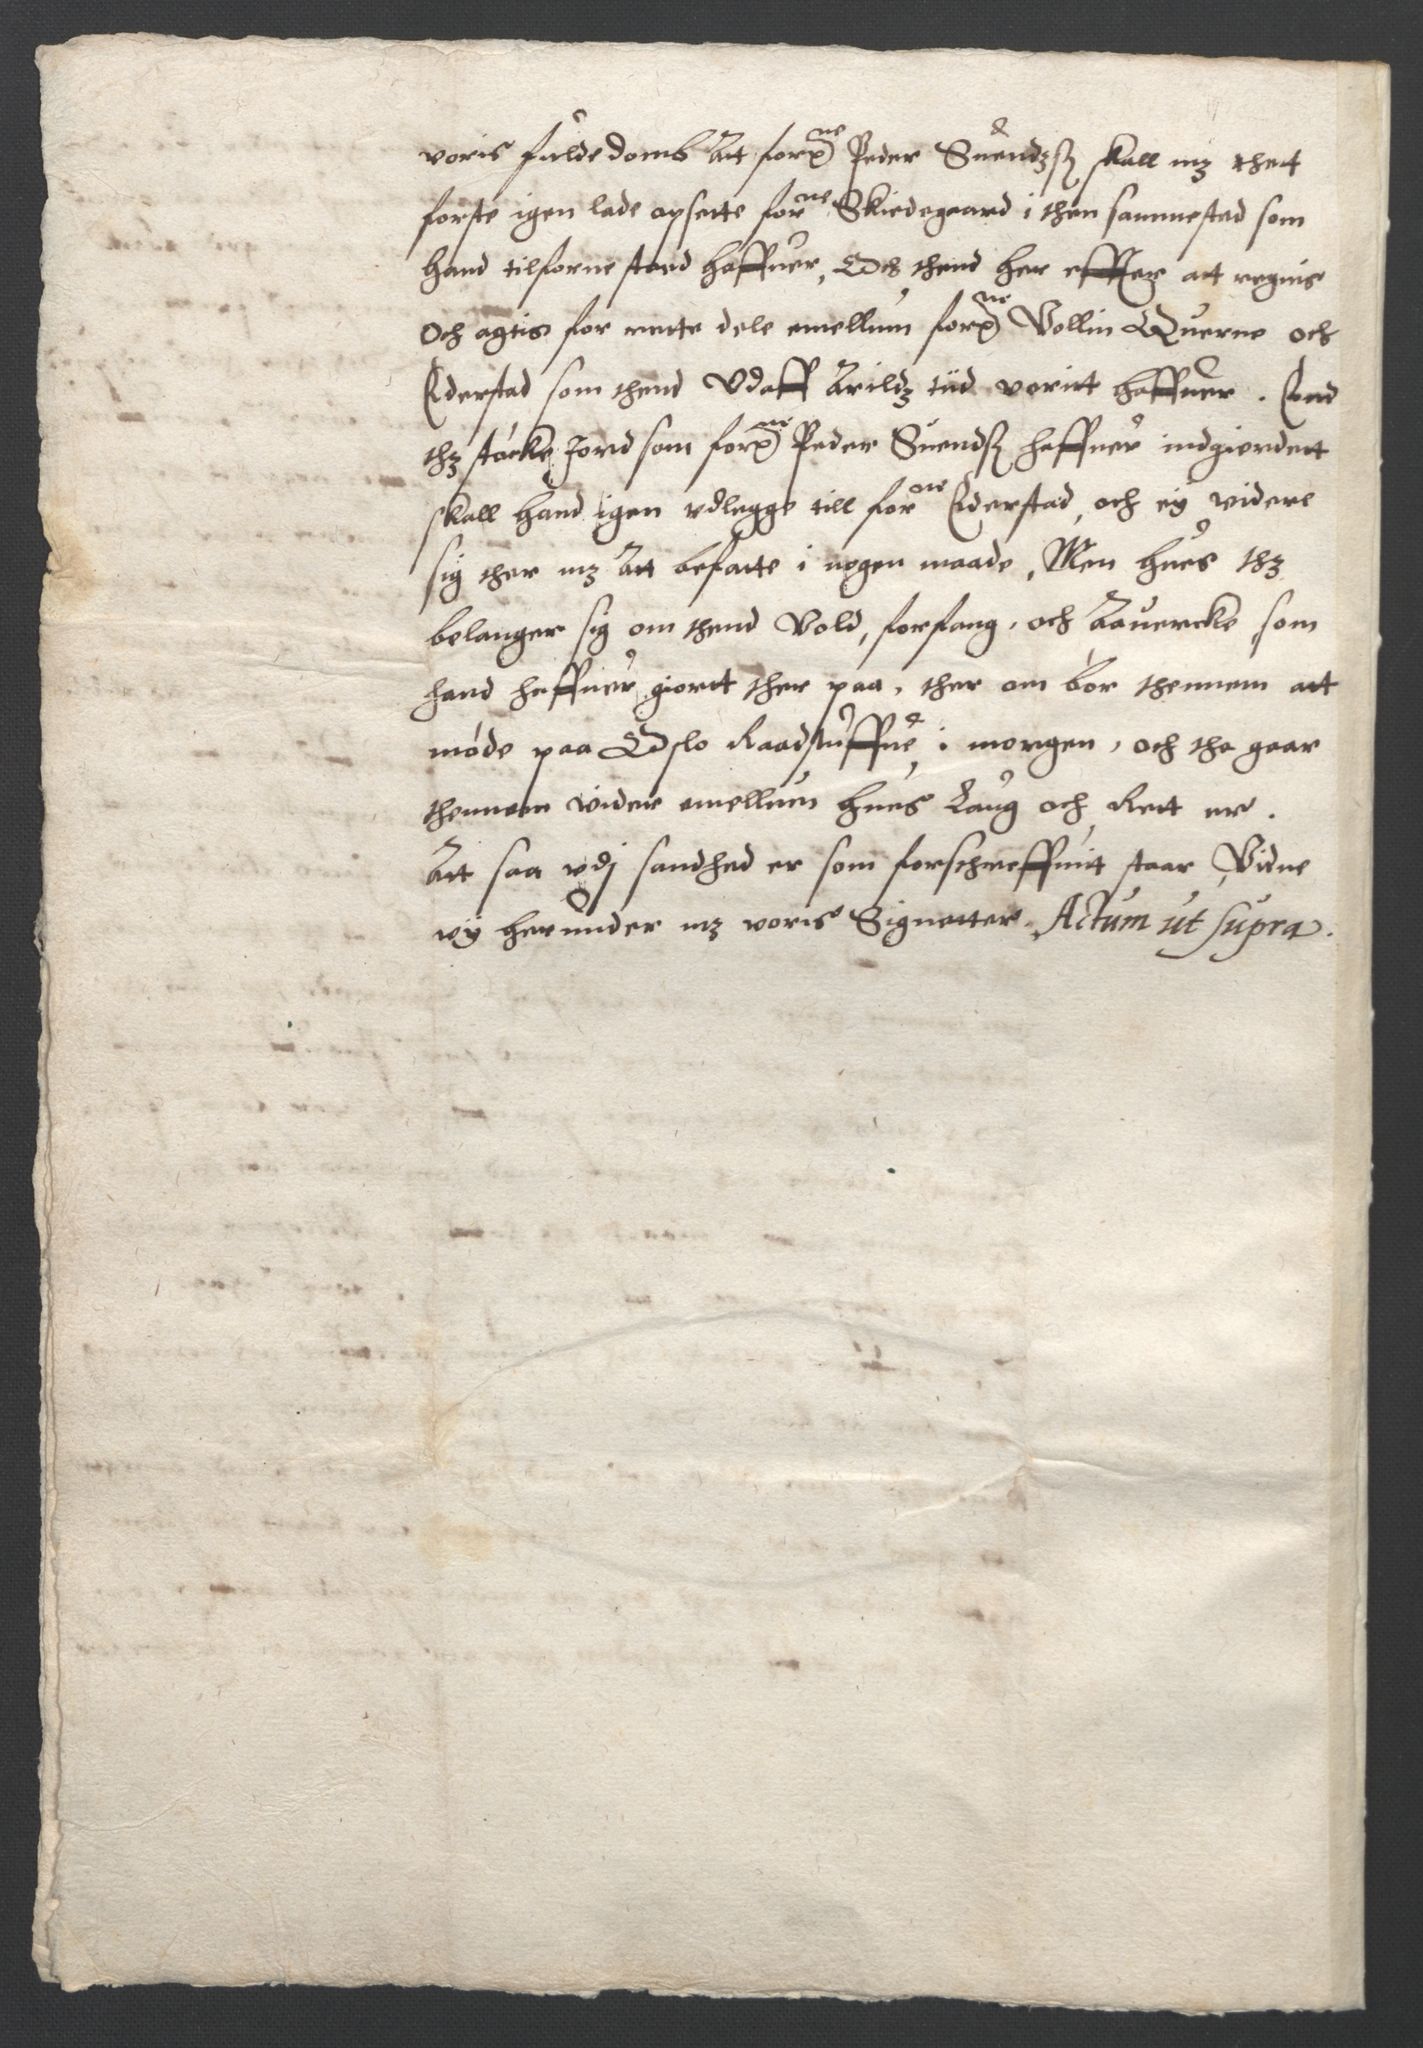 voris fulde domb Att forne Peder Suendzß skall mz thett
forste igen lade opsette forne Skiedegaard i then sammestad som
hand tilforne staed haffuer, Och thend her effter att regnis
Och agtis for rette dele emellum forne Vollin Querne och
Ederstad som thend Vdaff Arildz tiid veritt haffuer. End
thz støcke Jord som forne Peder Suendß haffuer indgierdett
skall hand igen vdlegge till forne Ederstad, och ey videre
sig ther mz Att befatte i nogen maade, Men hues thz
belanger sig om thend Vold, forfang, och Aauercke som
hand haffuer giortt ther paa, ther om bør thennem att
møde paa Oslo Raadstuffue i morgen, och tha gaar
thennem videre emellum hues Laug och Rett er.
Att saa vdj sandhed er som forschreffuit staar, Vidne
wy herunder mz voris Signetter. Actum ut supra.